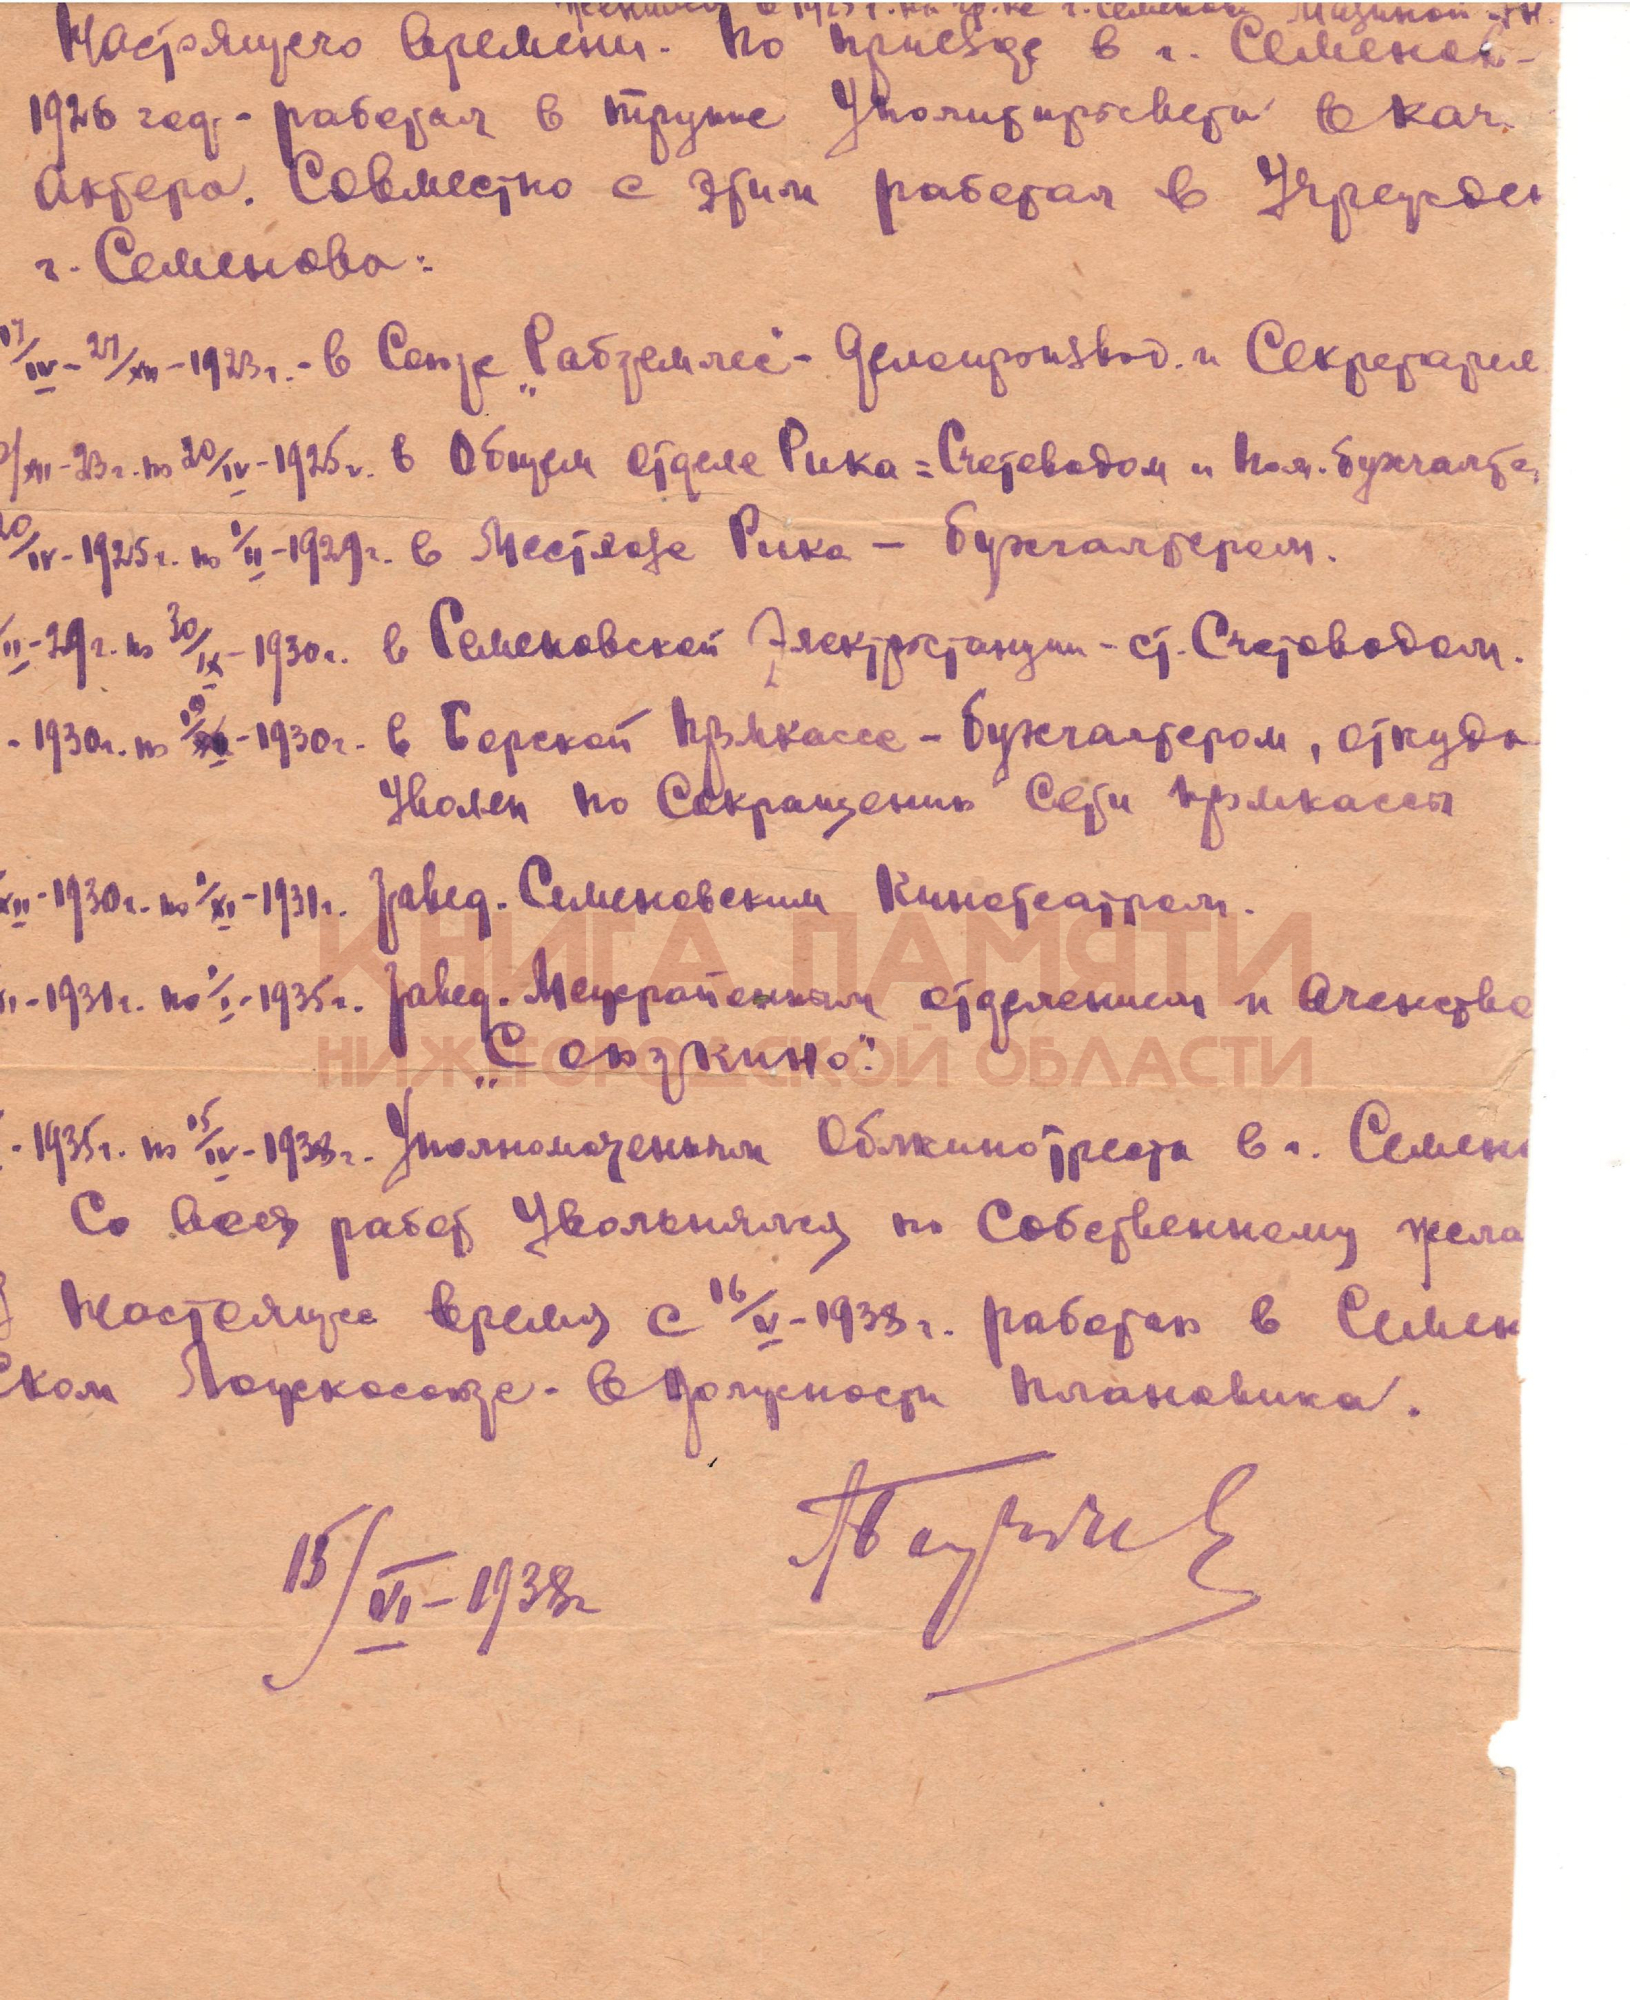 в 1923 г. на гр-ке г. Семенова Мазиной
Настоящего времени. По приезде в г. Семенов-
1926 год - работал в труппе Уполитпросвета в кач.
Актера. Совместно с этим работал в Учрежден
г. Семенова:
17/IV - 27/XII - 1923 г. - в Союзе „Рабземлес" - Делопроизвод. и Секретарем
/XII - 23 г. по 20/IV - 1925 г. в Общем отделе Рика = Счетоводом и пом. бухгалте
20/IV - 1925 г. по 1/II - 1929 г. в Местхозе Рика - бухгалтером.
/II - 29 г. по 30/IX - 1930 г. в Семеновской Электростанции - ст. Счетоводом.
- 1930 г. по - 1930 г. - в Борской Промкассе - бухгалтером, откуда
Уволен по Сокращению Сети промкассы
XII - 1930 г. по 1/XI - 1931 г. Завед. Семеновским Кинотеатром.
XI - 1931 г. по 1/I - 1935 г. Завед. Межрайонным отделением и Агенство
„Союзкино".
- 1935 г. по 15/IV - 1938 г. Уполномоченным Облкинотреста в г. Семен
Со всех работ Увольнялся по Собственному жела
В Настоящее время с 16/V - 1938 г. работаю в Семен
ском Ложкосоюзе - в должности плановика.
15/VI - 1938 г
КНИГА ПАМЯТИ
НИЖЕГОРОДСКОЙ ОБЛАСТИ